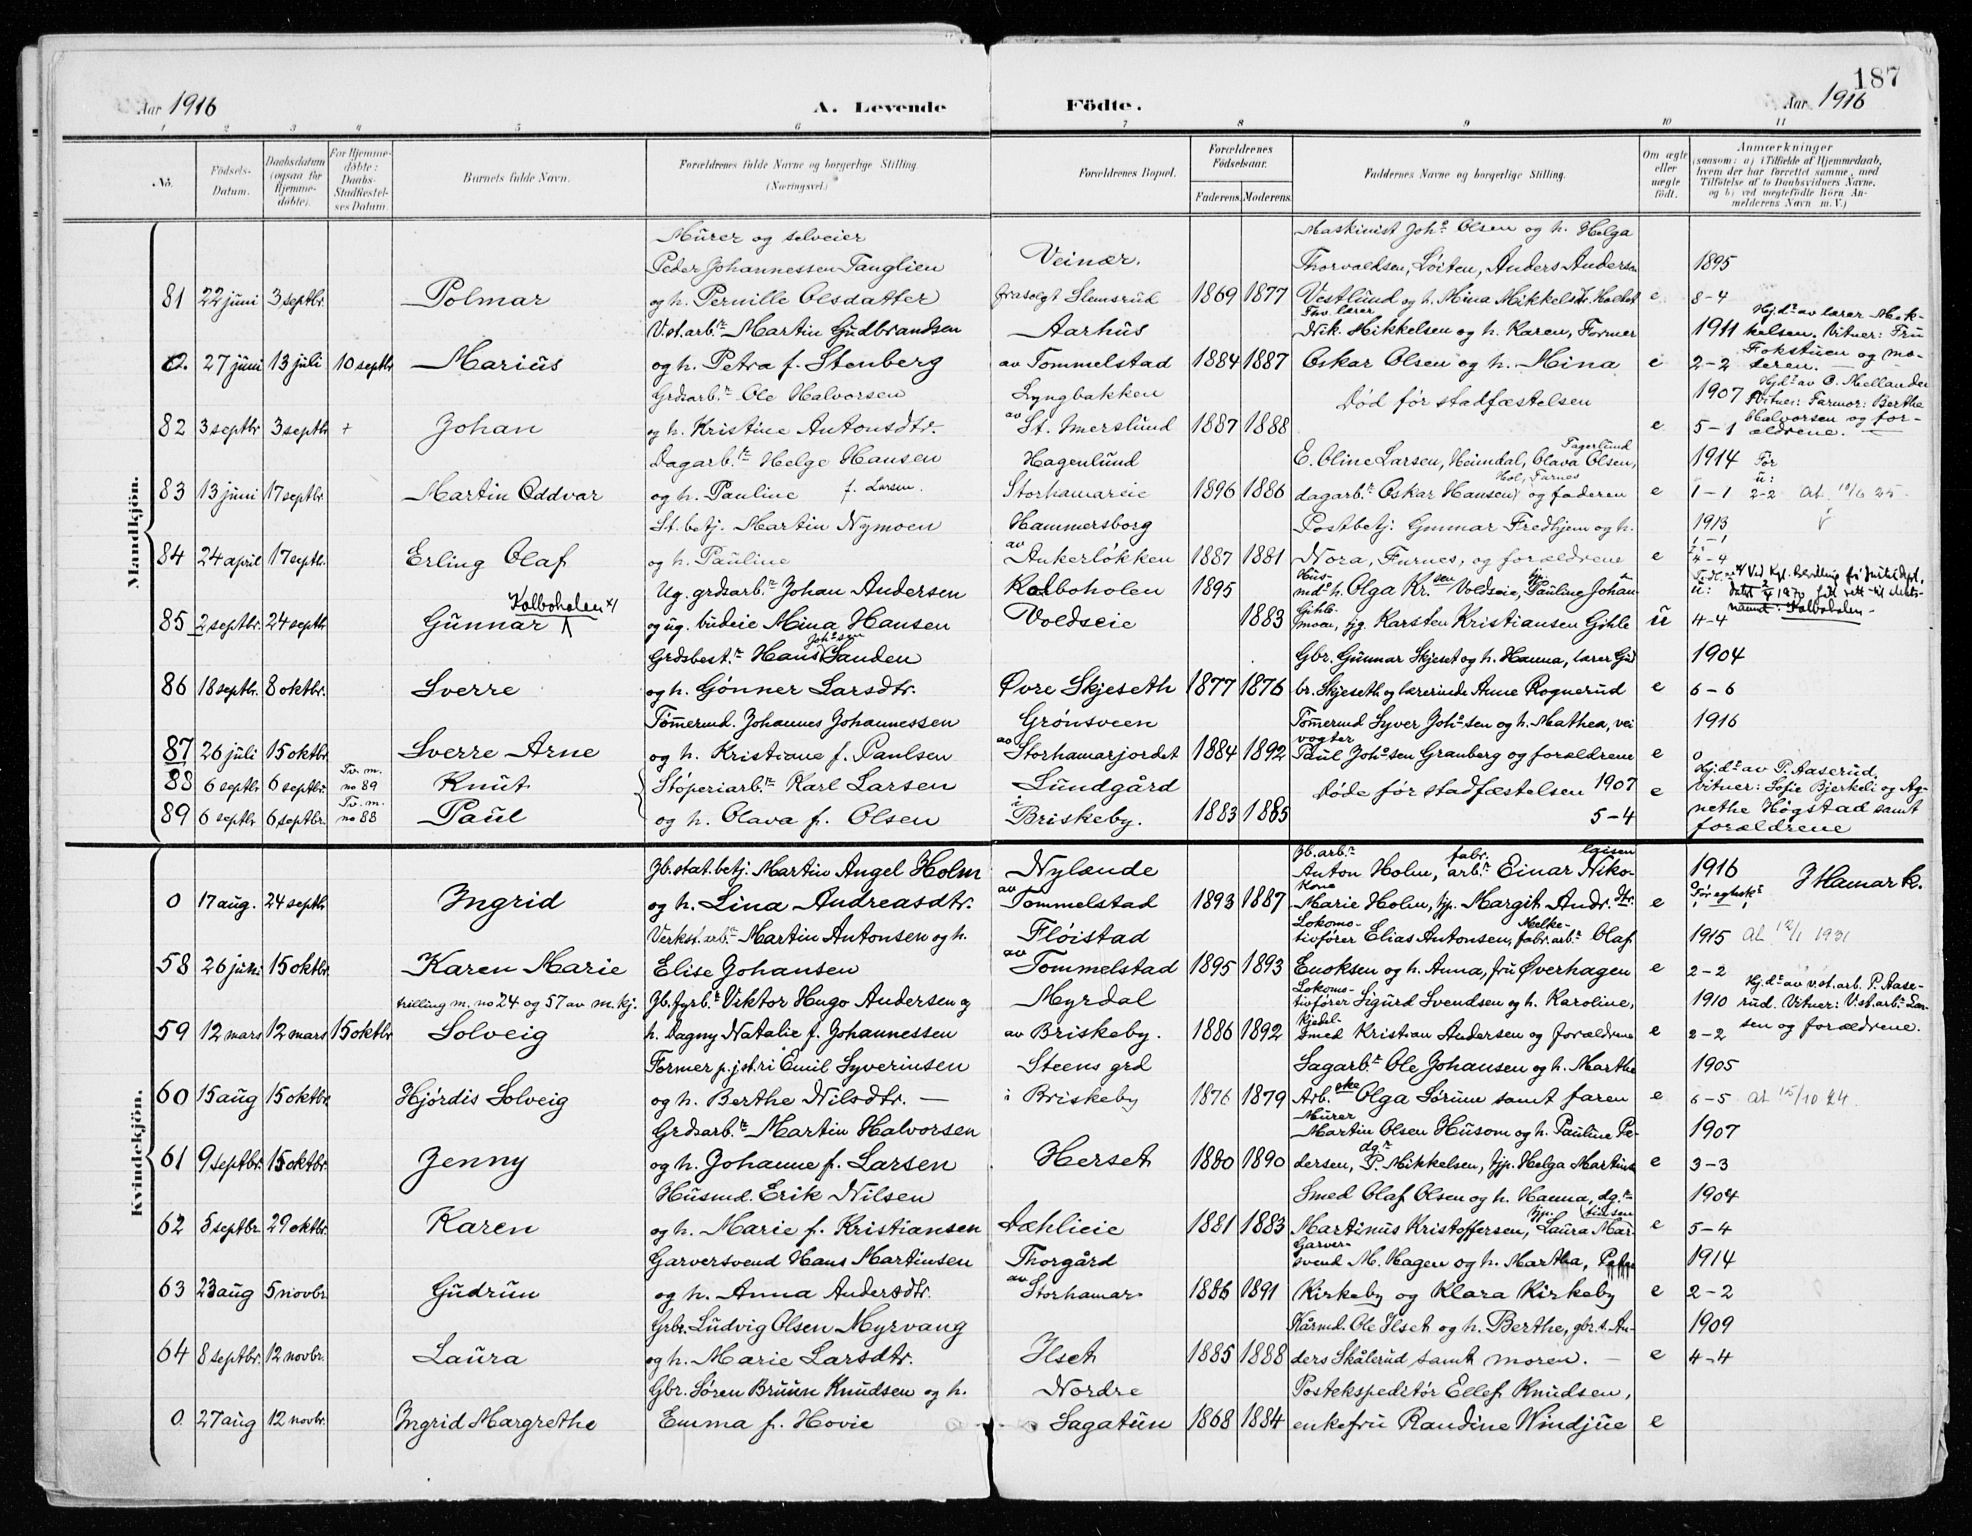 187
Aar 1916 A. Levende Födte. Aar 1916
1 2 3 4 5 6 7 8 9 10 11
No.
Födsels-Datum.
Daabsdatum (ogsaa for Hjemme-döbte).
For Hjemme-döbte: Daabs-Stadfæstel-ses Datum.
Barnets fulde Navn.
Forældrenes fulde Navne og borgerlige Stilling. (Næringsvei.)
Forældrenes Bopæl.
Forældrenes Födselsaar.
Faderens Moderens
Faddernes Navne og borgerlige Stilling.
Om ægte eller uægte födt.
Anmærkninger
(saasom: a) i Tilfælde af Hjemmedaab, hvem der har forrettet samme, med Tilföielse af to Daabsvidners Navne, og b) ved uegtefödte Börn An-melderens Navn m. V.)
Mandkjön.
Mürer og selveier Maskinist Joh.s Olsen og h. Helga
Peder Johannessen Tanglien Veinær. Thorvaldsen, Løiten, Anders Anderson 1895
81 22 juni 3 septbr. Polmar og h. Pernille Olsdatter frasolgt Slemsrud 1869 1877 Vestlund og h. Mina Mikkelsdtr. e 8-4
V.st.arb.r Martin Gudbrandsen Aarhüs Nik. Mikkelsen og h. Karen, Former 1911 Hj.d. av lærer Mik-kelsen. Vitner: Fru
0. 27 juni 13 juli 10 septbr Mariüs og h. Petra f. Stenberg av Tommelstad 1884 1887 Oskar Olsen og h. Mina e 2-2 Fokstuen og mo-deren.
Grdsarb.r Ole Halvorsen Lyngbakken Död för stadfæstelsen 1907 Hj.d. av O. Mellander Vitner: Farmor: Berthe
82 3 septbr 3 septbr + Johan og h. Kristine Antonsdtr. av St. Imerslund 1887 1888 e 5-1 Halvorsen og for-ældrene.
Dagarb.r Helge Hansen Hagenlünd E. Oline Larsen, Heimdal, Olava Olsen, Fagerlund 1914 För
83 13 juni 17 septbr. Martin Oddvar og h. Pauline f. Larsen. Storhamareie 1896 1886 dagarb.r Oskar Hansen, Hol, Furnes og faderen e 1-1 u: 2-2 At. 10/6 25
St.betj. Martin Nymoen Hammersborg Postbetj. Gunnar Fredhjem og h. 1913
84 24 april 17 septbr. Erling Olaf og h. Pauline av Ankerløkken 1887 1881 Nora, Furnes, og forældrene e 4-4
Ug. grdsarb.r Johan Andersen Kolboholen 1895 Hüs-md. h. Olga Kr.sen Voldseie, Pauline Johan
85 2 septbr. 24 septbr Günnar Kolboholen x) og ug. budeie Mina Hansen Voldseie 1883 moen, jg. Karsten Kristiansen Gihle ü u: 4-4 x) Ved Kgl. Bevilling
Grdsbest.r Hans Joh.sen Sanden Gbr. Günnar Skjeset og h. Hanna, lærer 1904
86 18 septbr. 8 oktbr. Sverre og h. Gönner Larsdtr. Øvre Skjeseth 1877 1876 br. Skjeseth og lærerinde Anne Rognerud e 6-6
Tømermd. Johannes Johannessen Grønsveen Tømermd Syver Joh.sen og h. Mathea, vei 1916
87 26 juli 15 oktbr. Sverre Arne og h. Kristiane f. Paulsen av Storhamarjordet 1884 1892 vogter Paul Joh.sen Granberg og forældrene e 0
88 6 septbr 6 septbr. Tv. m. no 89 Knut Støperiarb.r Karl Larsen Lundgård Døde før stadfæstelsen 1907 e Hj.d. av P. Aaserud. Vitner: Sofie Bjerkeli og Ag-
89 6 septbr 6 septbr. Tv. m. no 88 Paul og h. Olava f. Olsen i Briskeby. 1883 1885 5-4 nethe Høgstad samt forældrene
Kvindekjön.
Jb. stat.betj. Martin Angel Holm Nylænde Jb.arb.r Anton Holm, fabr. arb.r Einar Niko-laisen 1916 J Hamar k.
0 17 aug. 24 septbr Ingrid og h. Lina Andreasdtr. av Tommelstad 1893 1887 Kone Marie Holm, tjp. Margit Andr.dtr. e
Verkst.arb.r Martin Antonsen og h. Fløistad Lokomo-tivfører Elias Antonsen, Melke-fabr.arb.r Olaf 1915 At 12/1 1931
58 26 juni 15 oktbr. Karen Marie Elise Johansen av Tommelstad 1895 1893 Enoksen og h. Anna, fru Øverhagen e 2-2
trilling m. no 24 og 57 av m. kj. Jb. fyrb.r Viktor Hugo Andersen og Myrdal Lokomo-tivfører Sigurd Svendsen og h. Karoline, 1910 Hj.d. av v.st.arb. P. Aase-rud. Vitner: V.st.arb.r Lar-
59 12 mars 12 mars 15 oktbr Solveig h. Dagny Natalie f. Johannessen av Briskeby. 1886 1892 kjedel-smed Kristian Andersen og forældrene e 2-2 sen og forældrene.
Former p. jst.ri Emil Syverinsen Steens grd Sagarb.r Ole Johansen og h. Marthe 1905
60 15 aug 15 oktbr. Hjørdis Solveig og h. Berthe Nilsdtr. i Briskeby 1876 1879 Arb.ske Olga Sørum samt faren e 6-5 At 15/10 24.
Grdsarb.r Martin Halvorsen Murer Martin Olsen Hüsom og h. Pauline Pe- 1907
61 9 septbr. 15 oktbr. Jenny og h. Johanne f. Larsen Herset 1880 1890 dersen, dg.r P. Mikkelsen, tjp. Helga Martins e 3-3
Hüsmd. Erik Nilsen Smed Olaf Olsen og h. Hanna, dg.r 1904
62 5 septbr. 29 oktbr. Karen og h. Marie f. Kristiansen Dæhlieie 1881 1883 Martinus Kristoffersen, tjp. Laüra Mar-tinsen e 5-4
Garversvend Hans Martinsen Thorgård Garver-svend M. Hagen og h. Martha, Peder 1914
63 23 aug 5 novbr. Güdrün og h. Anna Andersdtr. av Storhamar 1886 1891 Kirkeby og Klara Kirkeby e 2-2
Gbr. Ludvig Olsen Myrvang Kårmd. Ole Ilset og h. Berthe, gbr.s. An- 1909
64 8 septbr. 12 novbr. Laüra og h. Marie Larsdtr. Ilset 1885 1888 ders Skålerud samt moren. e 4-4
Gbr. Søren Bruun Knudsen og h. Nordre Postekspeditør Ellef Knudsen,
0. 27 aug 12 novbr. Ingrid Margrethe Emma f. Hovie Sagatun 1868 1884 enkefru Randine Windjue e